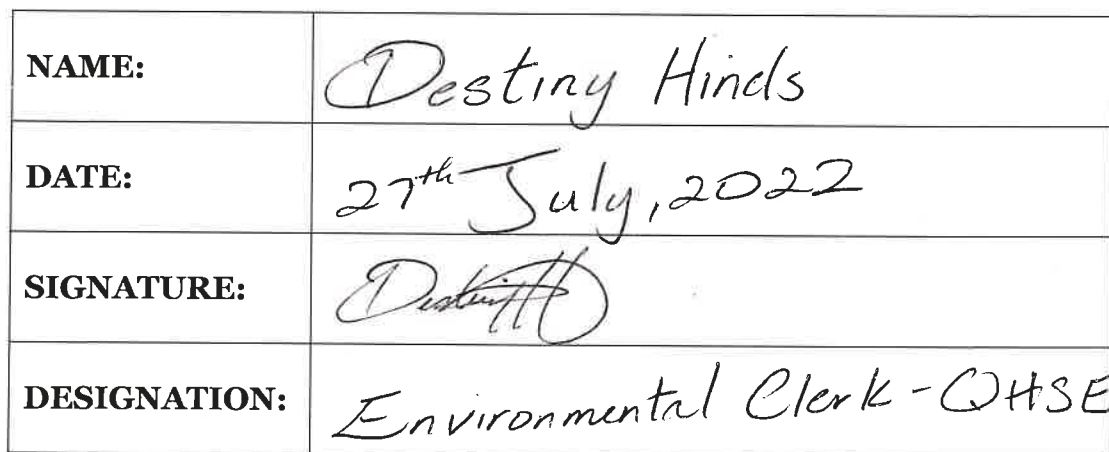 NAME: Destiny Hinds
DATE: 27th July, 2022
SIGNATURE:
DESIGNATION: Environmental Clerk - QHSE